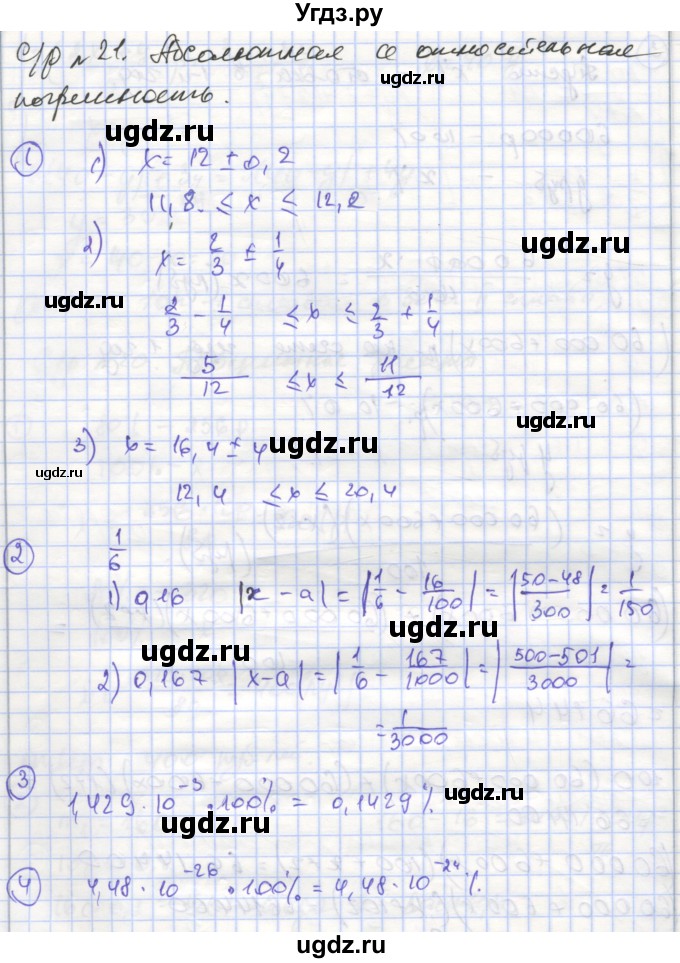 Угдз.ру
С/р № 21. Абсолютная и относительная
погрешность.
ugdz.ru
ugdz.ru
① 1) x = 12 ± 0,2
ugdz.ru
11,8 ≤ x ≤ 12,2
2) x = 2/3 ± 1/4
ugdz.ru
ugdz.ru
2/3 - 1/4 ≤ x ≤ 2/3 + 1/4
5/12 ≤ x ≤ 11/12
3) x = 16,4 ± 4
ugdz.ru
ugdz.ru
12,4 ≤ x ≤ 20,4
② 1/6
ugdz.ru
1) 0,16 |x - a| = |1/6 - 16/100| = |50-48/300| = 1/150
ugdz.ru
ugdz.ru
2) 0,167 |x-a| = |1/6 - 167/1000| = |500-501/3000| =
= 1/3000
ugdz.ru
③ 1,429·10⁻³·100% = 0,1429%.
ugdz.ru
ugdz.ru
④ 4,48·10⁻²⁶·100% = 4,48·10⁻²⁴%.
ugdz.ru